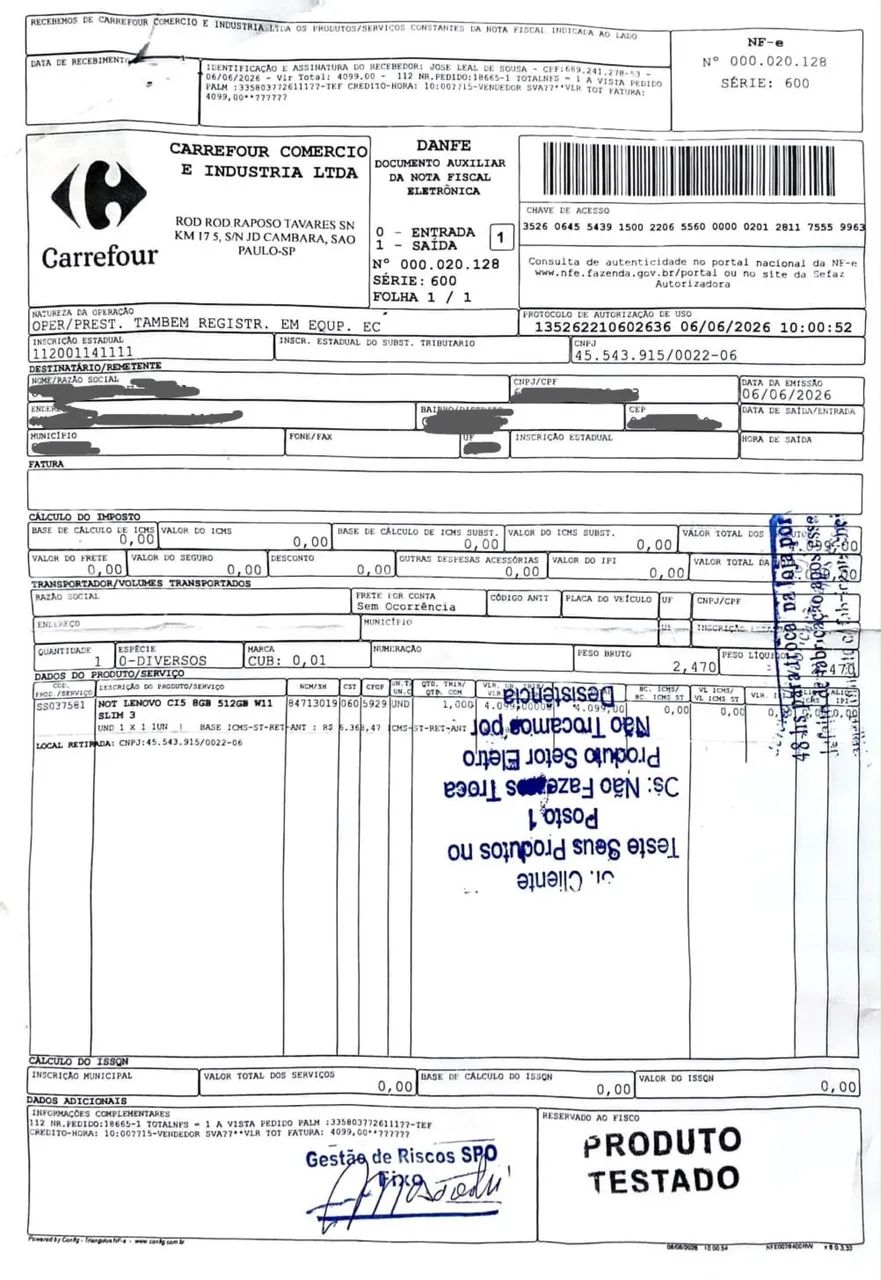 RECEBEMOS DE CARREFOUR COMERCIO E INDUSTRIA LTDA OS PRODUTOS/SERVIÇOS CONSTANTES DA NOTA FISCAL INDICADA AO LADO
DATA DE RECEBIMENTO
IDENTIFICAÇÃO E ASSINATURA DO RECEBEDOR: JOSE LEAL DE SOUSA - CPF:689.241.278-53 -
06/06/2026 - Vlr Total: 4099.00 - 112 NR.PEDIDO:18665-1 TOTALNFS = 1 A VISTA PEDIDO
PALM :335803772611177-TEF CREDITO-HORA: 10:00??15-VENDEDOR SVA??**VLR TOT FATURA:
4099,00**??????
NF-e
Nº 000.020.128
SÉRIE: 600
Carrefour
CARREFOUR COMERCIO
E INDUSTRIA LTDA
ROD ROD RAPOSO TAVARES SN
KM 17 5, S/N JD CAMBARA, SAO
PAULO-SP
DANFE
DOCUMENTO AUXILIAR
DA NOTA FISCAL
ELETRÔNICA
0 - ENTRADA
1 - SAÍDA
1
Nº 000.020.128
SÉRIE: 600
FOLHA 1 / 1
CHAVE DE ACESSO
3526 0645 5439 1500 2206 5560 0000 0201 2811 7555 9963
Consulta de autenticidade no portal nacional da NF-e
www.nfe.fazenda.gov.br/portal ou no site da Sefaz
Autorizadora
NATUREZA DA OPERAÇÃO
OPER/PREST. TAMBEM REGISTR. EM EQUP. EC
PROTOCOLO DE AUTORIZAÇÃO DE USO
135262210602636 06/06/2026 10:00:52
INSCRIÇÃO ESTADUAL
112001141111
INSCR. ESTADUAL DO SUBST. TRIBUTARIO
CNPJ
45.543.915/0022-06
DESTINATÁRIO/REMETENTE
NOME/RAZÃO SOCIAL
CNPJ/CPF
DATA DA EMISSÃO
06/06/2026
CEP
DATA DE SAÍDA/ENTRADA
MUNICÍPIO
FONE/FAX
UF
INSCRIÇÃO ESTADUAL
HORA DE SAÍDA
FATURA
CÁLCULO DO IMPOSTO
BASE DE CÁLCULO DE ICMS 0,00
VALOR DO ICMS 0,00
BASE DE CÁLCULO DE ICMS SUBST. 0,00
VALOR DO ICMS SUBST. 0,00
VALOR TOTAL DOS
VALOR DO FRETE 0,00
VALOR DO SEGURO 0,00
DESCONTO 0,00
OUTRAS DESPESAS ACESSÓRIAS 0,00
VALOR DO IPI 0,00
VALOR TOTAL DA
TRANSPORTADOR/VOLUMES TRANSPORTADOS
RAZÃO SOCIAL
FRETE POR CONTA
Sem Ocorrência
CÓDIGO ANTT
PLACA DO VEÍCULO
UF
CNPJ/CPF
ENDEREÇO
MUNICÍPIO
UF
INSCRIÇÃO ESTADUAL
QUANTIDADE
1
ESPÉCIE
0-DIVERSOS
MARCA
CUB: 0,01
NUMERAÇÃO
PESO BRUTO
2,470
PESO LÍQUIDO
DADOS DO PRODUTO/SERVIÇO
COD. PROD./SERVIÇO
DESCRIÇÃO DO PRODUTO/SERVIÇO
NCM/SH
CST
CFOP
QTD. COM
BC. ICMS/
BC. ICMS ST
VL ICMS/
VL ICMS ST
SS037581 NOT LENOVO CI5 8GB 512GB W11 84713019 060 5929 UND 1,000 4.099,00000 4.099,00 0,00 0,00
SLIM 3
UND 1 X 1 1UN | BASE ICMS-ST-RET-ANT : R$
LOCAL RETIRADA: CNPJ:45.543.915/0022-06
Cliente
Teste Seus Produtos no
Posto 1
Não Fazemos Troca
Produto Setor Eletro
Não Trocamos por
Desistência
48 hs para troca na loja por
de fabricação após esse
CÁLCULO DO ISSQN
INSCRIÇÃO MUNICIPAL
VALOR TOTAL DOS SERVIÇOS 0,00
BASE DE CÁLCULO DO ISSQN 0,00
VALOR DO ISSQN 0,00
DADOS ADICIONAIS
INFORMAÇÕES COMPLEMENTARES
112 NR.PEDIDO:18665-1 TOTALNFS = 1 A VISTA PEDIDO PALM :335803772611177-TEF
CREDITO-HORA: 10:00??15-VENDEDOR SVA??**VLR TOT FATURA: 4099,00**??????
Gestão de Riscos SPO
Fixo
RESERVADO AO FISCO
PRODUTO
TESTADO
06/06/2026 10:00:54